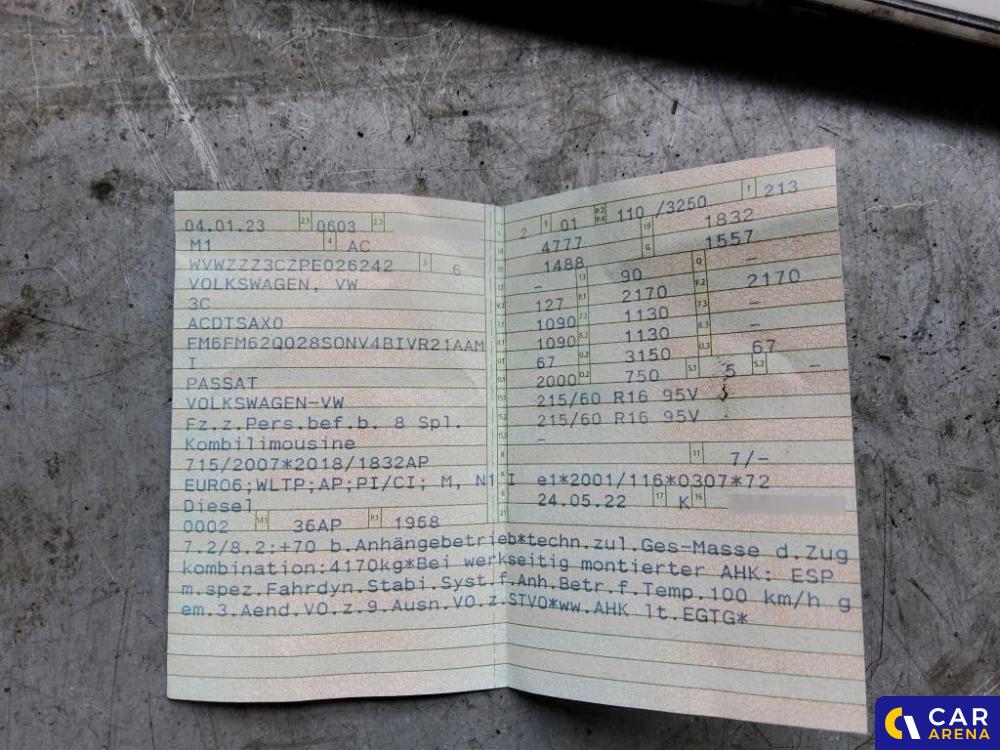 04.01.23 2.1 0603 2.2
M1 4 AC
WVWZZZ3CZPE026242 3 6
VOLKSWAGEN, VW
3C
ACDTSAX0
FM6FM62Q028SONV4BIVR21AAM
I
PASSAT
VOLKSWAGEN-VW
Fz.z.Pers.bef.b. 8 Spl.
Kombilimousine
715/2007*2018/1832AP
EURO6;WLTP;AP;PI/CI; M, N1 I
Diesel
0002 14.1 36AP P.1 1968
L 2 9 01 P.2 P.4 110 /3250 T 213
18 4777 19 1832
20 1488 G 1557
12 – 13 90 Q –
V.7 127 F.1 2170 F.2 2170
7.1 1090 7.2 1130 7.3 –
8.1 1090 8.2 1130 8.3 –
U.1 67 U.2 3150 U.3 67
O.1 2000 O.2 750 S.1 5 S.2 –
15.1 215/60 R16 95V
15.2 215/60 R16 95V
15.3 –
R 11 7/–
K e1*2001/116*0307*72
6 24.05.22 17 K 16
21
7.2/8.2:+70 b.Anhängebetrieb*techn.zul.Ges-Masse d.Zug
kombination:4170kg*Bei werkseitig montierter AHK: ESP
m.spez.Fahrdyn.Stabi.Syst.f.Anh.Betr.f.Temp.100 km/h g
em.3.Aend.VO.z.9.Ausn.VO.z.STVO*ww.AHK lt.EGTG*
CAR
ARENA